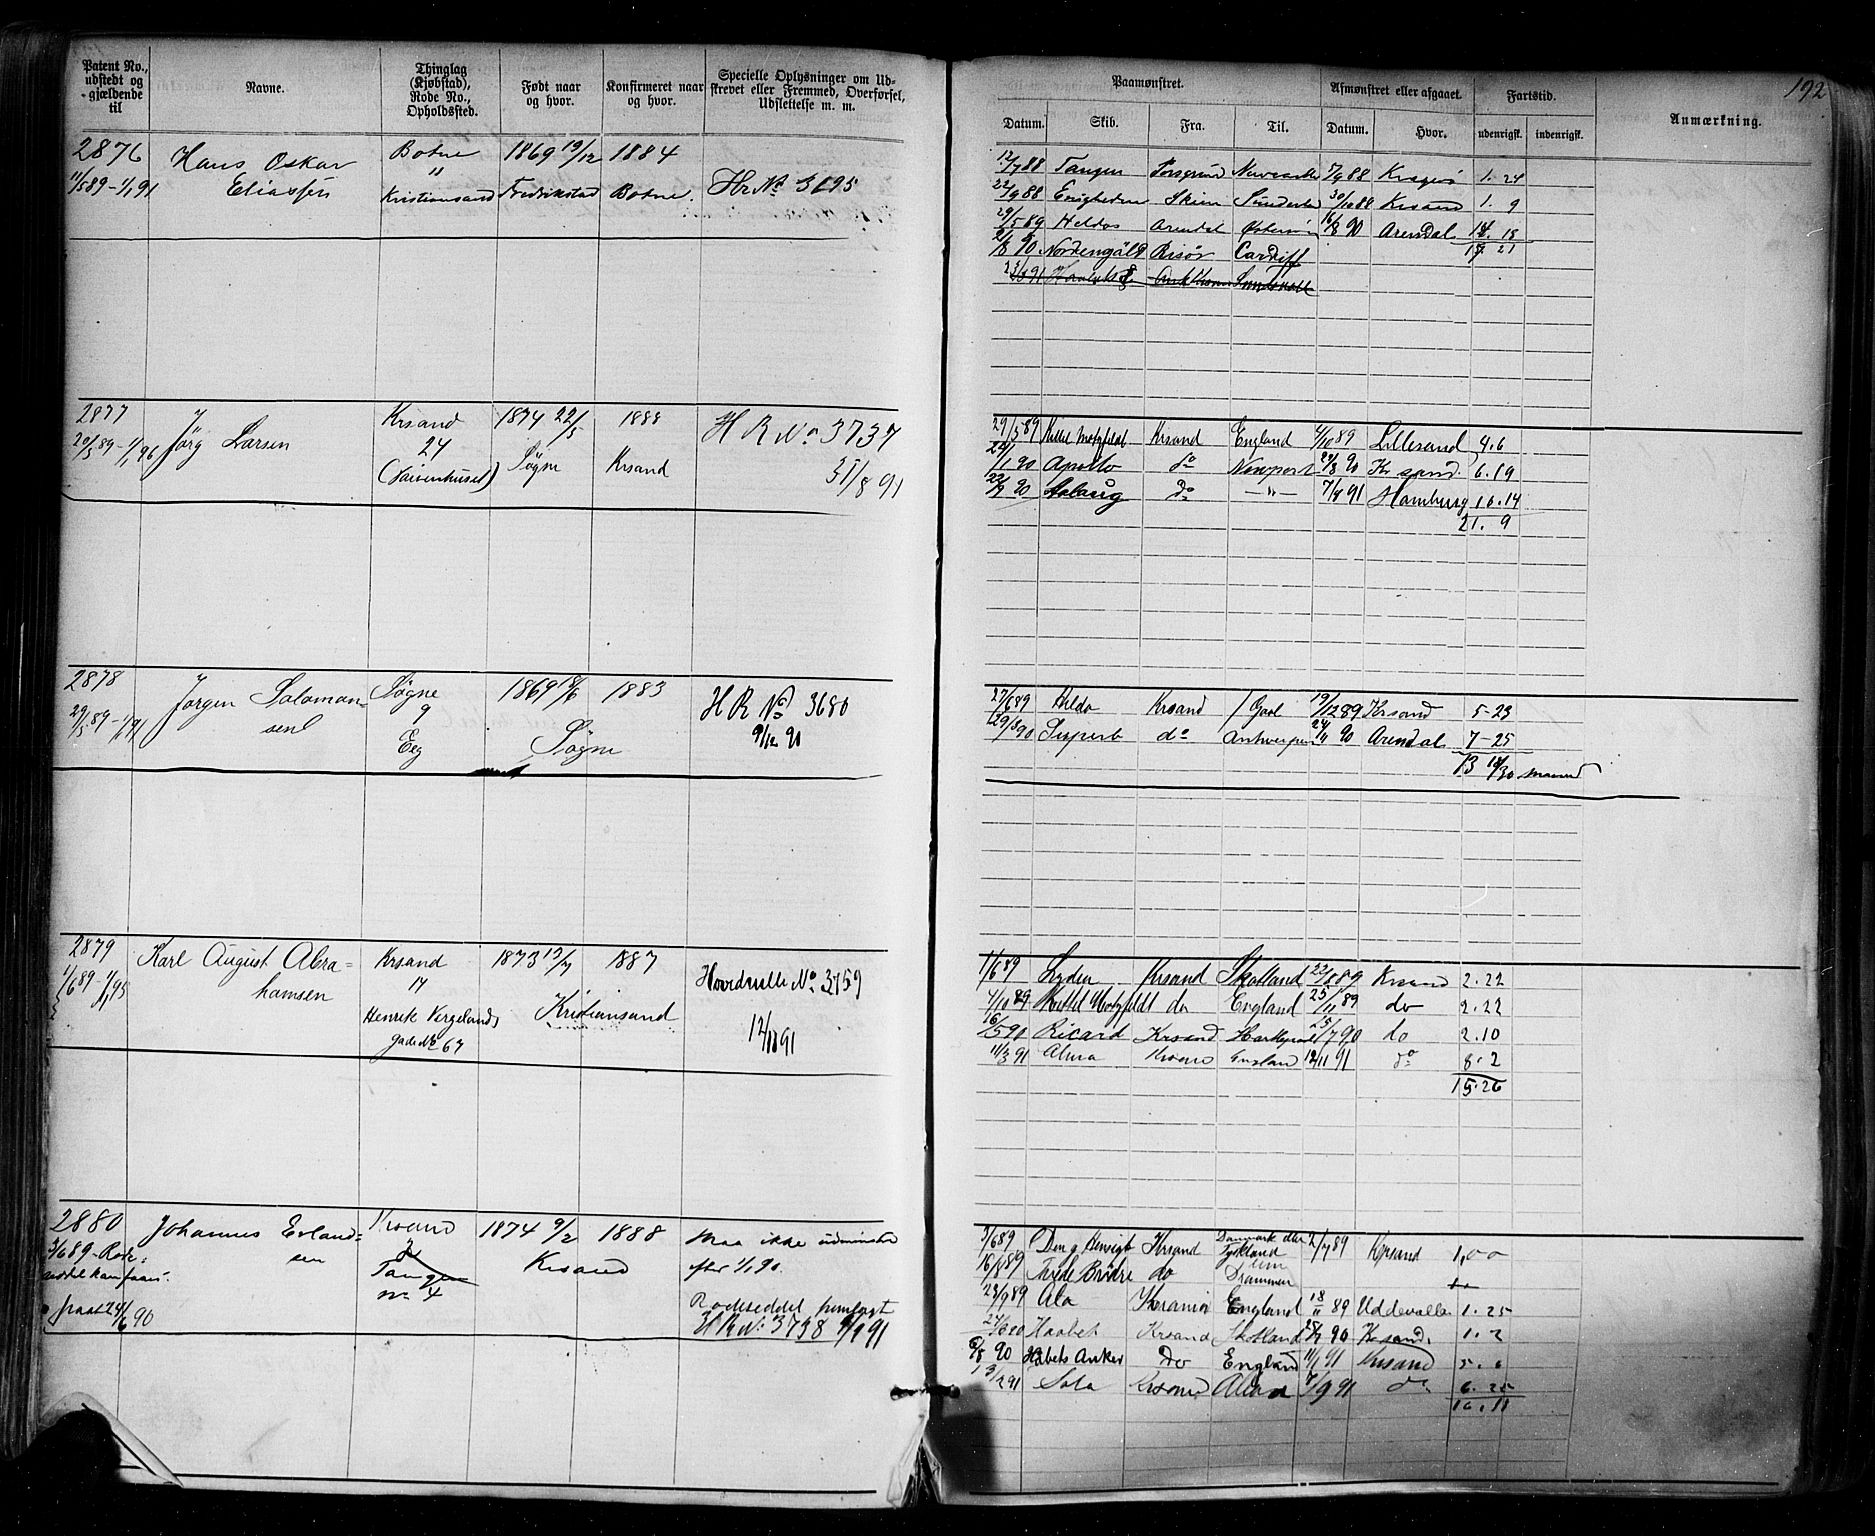 192
Patent No., udstedt og gjældende til
Navne.
Thinglag (Kjøbstad), Rode No., Opholdssted.
Født naar og hvor.
Konfirmeret naar og hvor.
Specielle Oplysninger om Udskrevet eller Fremmed, Overførsel, Udslettelse m. m.
Paamønstret.
Afmønstret eller afgaaet.
Fartstid.
Anmærkning.
Datum. Skib. Fra. Til. Datum. Hvor. udenrigsk. indenrigsk.
2876 Hans Oskar Botne 1869 19/12 1884
11/5 89-1/1 91 Eliassen " Kristianssand Fredrikstad Botne. HR No 3695
12/7 88 Tangen Porsgrund 5/9 88 Kragerø 1. 24
22/9 88 Enigheden Skien 30/10 88 Krsand 1. 9
29/5 89 Arendal 16/8 90 Arendal 14. 18
17 21
90 Risør Cardiff
2877 Jörg Larsen Krsand 1874 22/5 1888 H R No 3737
20/5 89-1/1 96 24 Søgne Krsand 31/8 91
29/5 89 Krsand England 4/10 89 Lillesand 4. 6
90 Apollo do Newport 90 Kr sand. 6. 19
90 Aslaug do -"- 7/8 91 Hamburg 10. 14
21. 9
2878 Jørgen Salamon- Søgne 1869 18/6 1883 H R No 3680
29/5 89-1/1 91 sen 9 Søgne 9/12 90
Eeg
27/6 89 Hilda Krsand 19/12 89 Krsand 5-23
29/3 90 Superb do Antwerpen 24/11 90 Arendal 7-25
13 18/30 maaned
2879 Karl August Abra- Krsand 1873 13/7 1887 Hovedrulle No 3759
1/6 89-1/1 95 hamsen 17 Kristiansand 12/11 91
Henrik Vergelands
gade No 67
1/6 89 Lyden Krsand Skotland 22/8 89 Krsand 2. 22
4/10 89 Kittel do England 25/11 89 do 2. 22
16/5 90 Ricard Krsand 25/7 90 do 2. 10
11/3 91 Alma Krsand England 12/11 91 do 8. 2
15. 26
2880 Johannes Erland- Krsand 1874 9/2 1888 Maa ikke udmønstres
3/6 89-Rode- sen 2 Krsand efter 1/1 90.
Tangen
No 4
24/6 90 Rodeseddel fremlagt
H R No 3738 91
3/6 89 Den g Hensigt Krsand Danmark eller Tyskland 2/7 89 Krsand 1,00
16/8 89 Trede Brødre do Drammen
23/9 89 Ala England 18/11 89 Uddevalla 1. 25
Haabet Krsand Skotland 90 Krsand. 1. 2
6/8 90 Habets Anker do England 11/1 91 Krsand
3/2 91 Sola Krsand 7/9 91 do 6. 25
16. 11